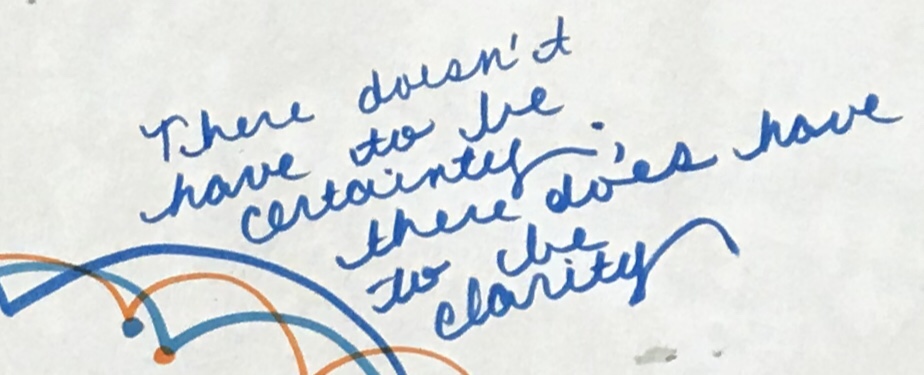 There doesn't
have to be
certainty;
there does have
to be
clarity